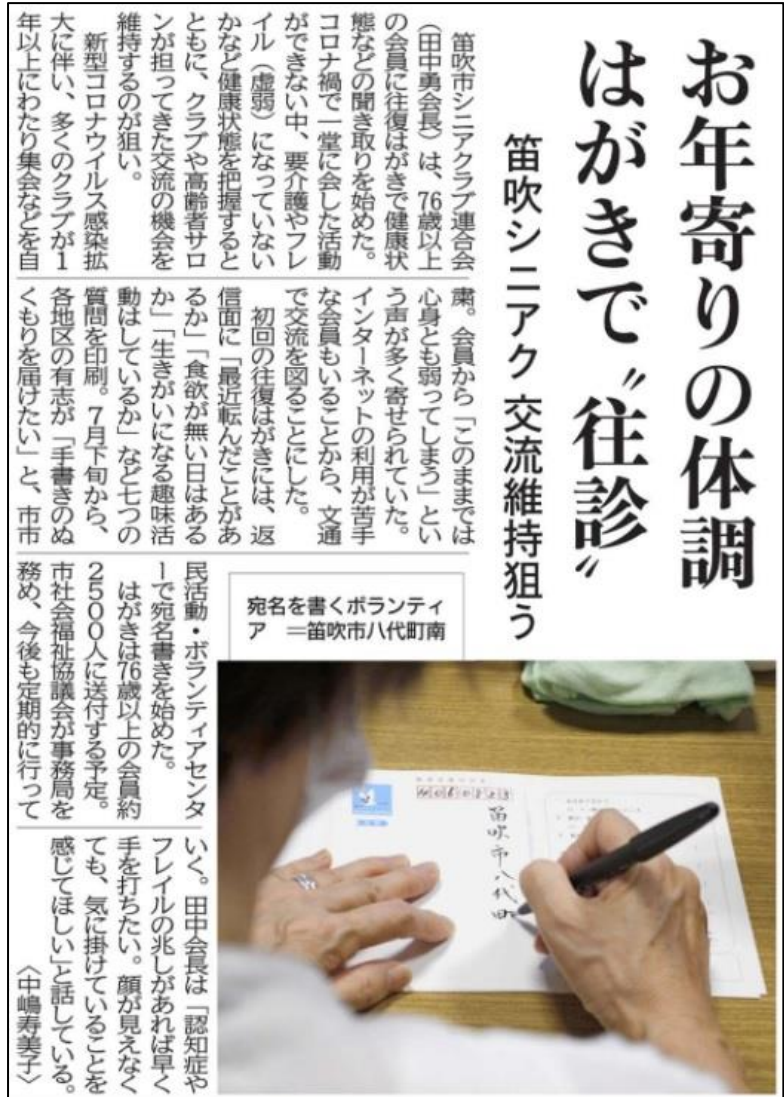 お年寄りの体調
はがきで〝往診〟
笛吹シニアク 交流維持狙う
笛吹市シニアクラブ連合会
(田中勇会長)は、76歳以上
の会員に往復はがきで健康状
態などの聞き取りを始めた。
コロナ禍で一堂に会した活動
ができない中、要介護やフレ
イル(虚弱)になっていない
かなど健康状態を把握すると
ともに、クラブや高齢者サロ
ンが担ってきた交流の機会を
維持するのが狙い。
新型コロナウイルス感染拡
大に伴い、多くのクラブが1
年以上にわたり集会などを自
粛。会員から「このままでは
心身とも弱ってしまう」とい
う声が多く寄せられていた。
インターネットの利用が苦手
な会員もいることから、文通
で交流を図ることにした。
初回の往復はがきには、返
信面に「最近転んだことがあ
るか」「食欲が無い日はある
か」「生きがいになる趣味活
動はしているか」など七つの
質問を印刷。7月下旬から、
各地区の有志が「手書きのぬ
くもりを届けたい」と、市市
民活動・ボランティアセンタ
ーで宛名書きを始めた。
はがきは76歳以上の会員約
2500人に送付する予定。
市社会福祉協議会が事務局を
務め、今後も定期的に行って
いく。田中会長は「認知症や
フレイルの兆しがあれば早く
手を打ちたい。顔が見えなく
ても、気に掛けていることを
感じてほしい」と話している。
〈中嶋寿美子〉
宛名を書くボランティ
ア =笛吹市八代町南
笛吹市八代町